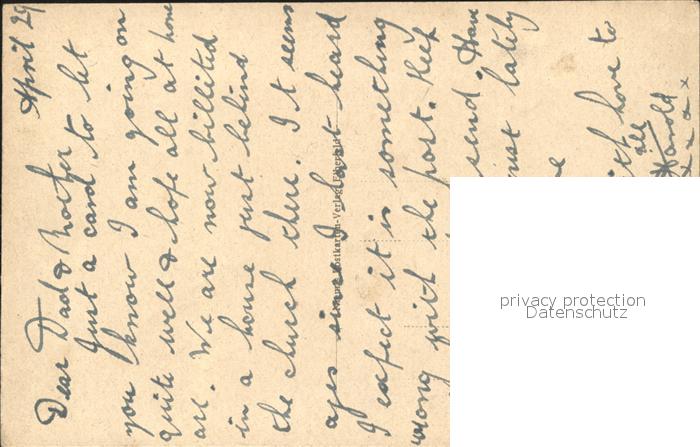 April 29
Dear Dad & Mother
Just a card to let
you know I am going on
quite well & hope all at home
are. We are now billited
in a house just behind
the church there. I it seems
ages since I last heard
I expect it is something
wrong with the post. Keep
send. Have
just lately
with love to
all
Harold
x x x
Postkarten-Verlag
privacy protection
Datenschutz